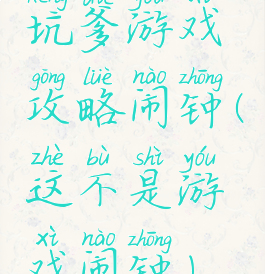 kēng diē yóu xì
坑爹游戏
gōng lüè nào zhōng
攻略闹钟(
zhè bù shì yóu
这不是游
xì nào zhōng
戏闹钟)